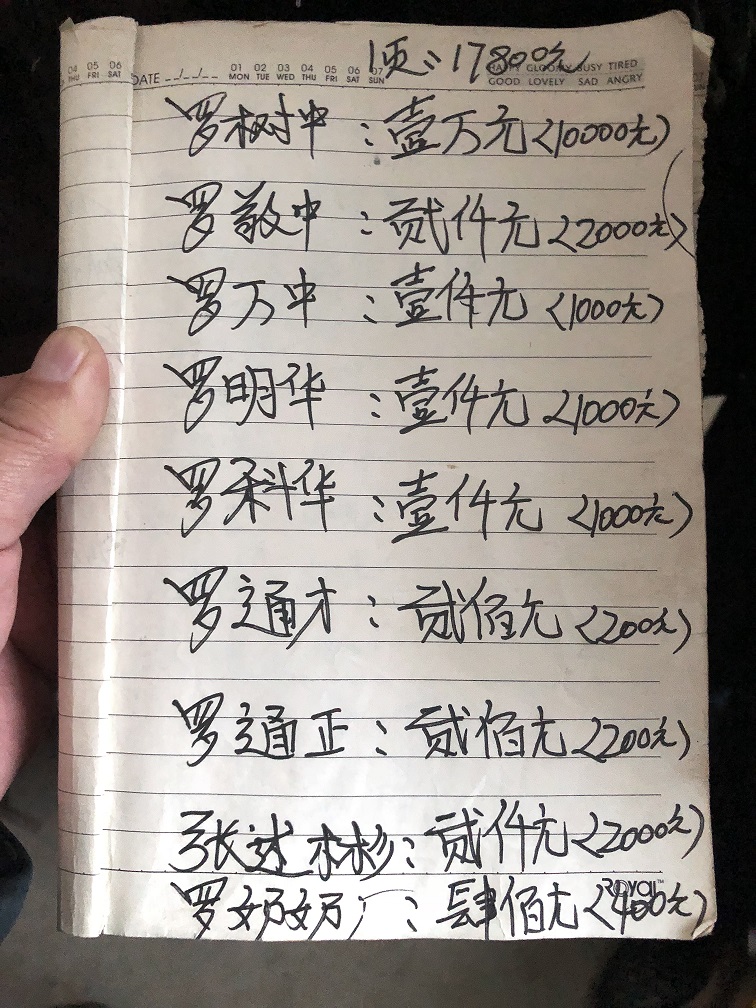 1页:17800元
04 05 06 01 02 03 04 05 06 07
THU FRI SAT DATE __/__/__ MON TUE WED THU FRI SAT SUN
HAPPY GLOOMY BUSY TIRED
GOOD LOVELY SAD ANGRY
罗树中:壹万元<10000元>
罗敬中:贰仟元<2000元>
罗万中:壹仟元<1000元>
罗明华:壹仟元<1000元>
罗科华:壹仟元<1000元>
罗通才:贰佰元<200元>
罗通正:贰佰元<200元>
张述彬:贰仟元<2000元>
罗奶奶:肆佰元<400元>
ROYAL